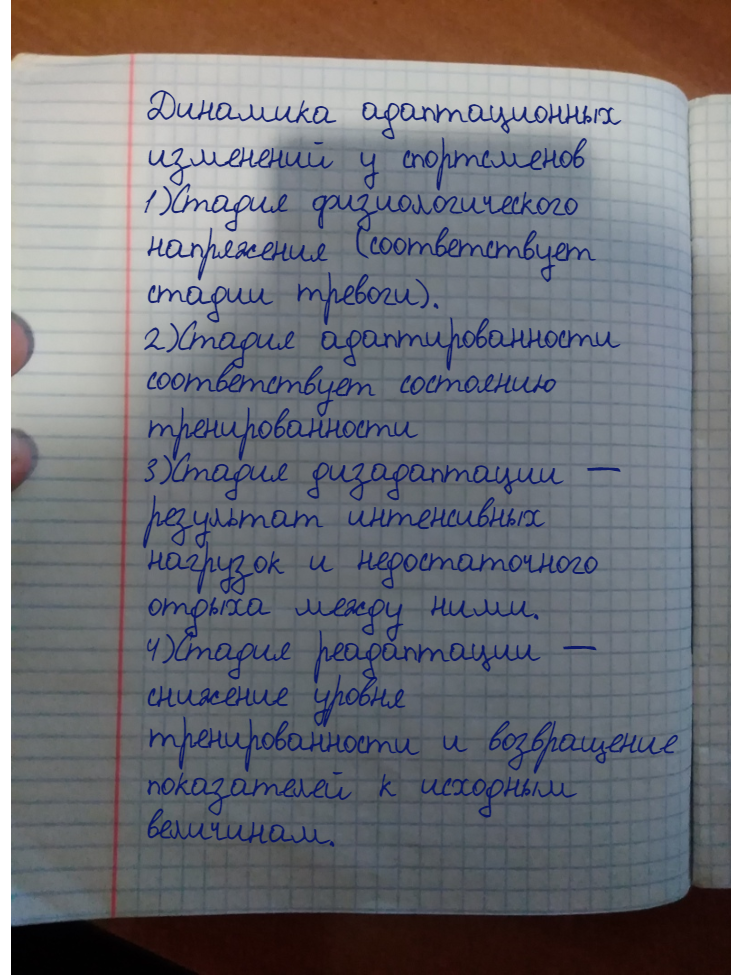 Динамика адаптационных
изменений у спортсменов
1)Стадия физиологического
напряжения (соответствует
стадии тревоги).
2)Стадия адаптированности
соответствует состоянию
тренированности
3)Стадия дизадаптации —
результат интенсивных
нагрузок и недостаточного
отдыха между ними.
4)Стадия реадаптации —
снижение уровня
тренированности и возвращение
показателей к исходным
величинам.